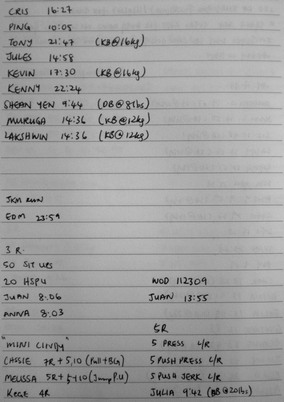 CRIS 16:27
PING 10:05
TONY 21:47 (KB@16kg)
JULES 14:58
KEVIN 17:30 (KB@16kg)
KENNY 22:24
SHEAN YEN 9:44 (DB@8lbs)
MURUGA 14:36 (KB@12kg)
LAKSHWIN 14:36 (KB@12kg)
RUN
EDM 23:59
3 R.
50 SIT UPS
20 HSPU WOD 112309
JUAN 8:06 JUAN 13:55
ANNA 8:03
5R
"MINI CINDY" 5 PRESS L/R
CASSIE 7R + 5,10 (Pull+BLG) 5 PUSH PRESS L/R
MELISSA 5R + 5+10 (Jump P.U) 5 PUSH JERK L/R
4R JULIA 9:42 (DB@20lbs)